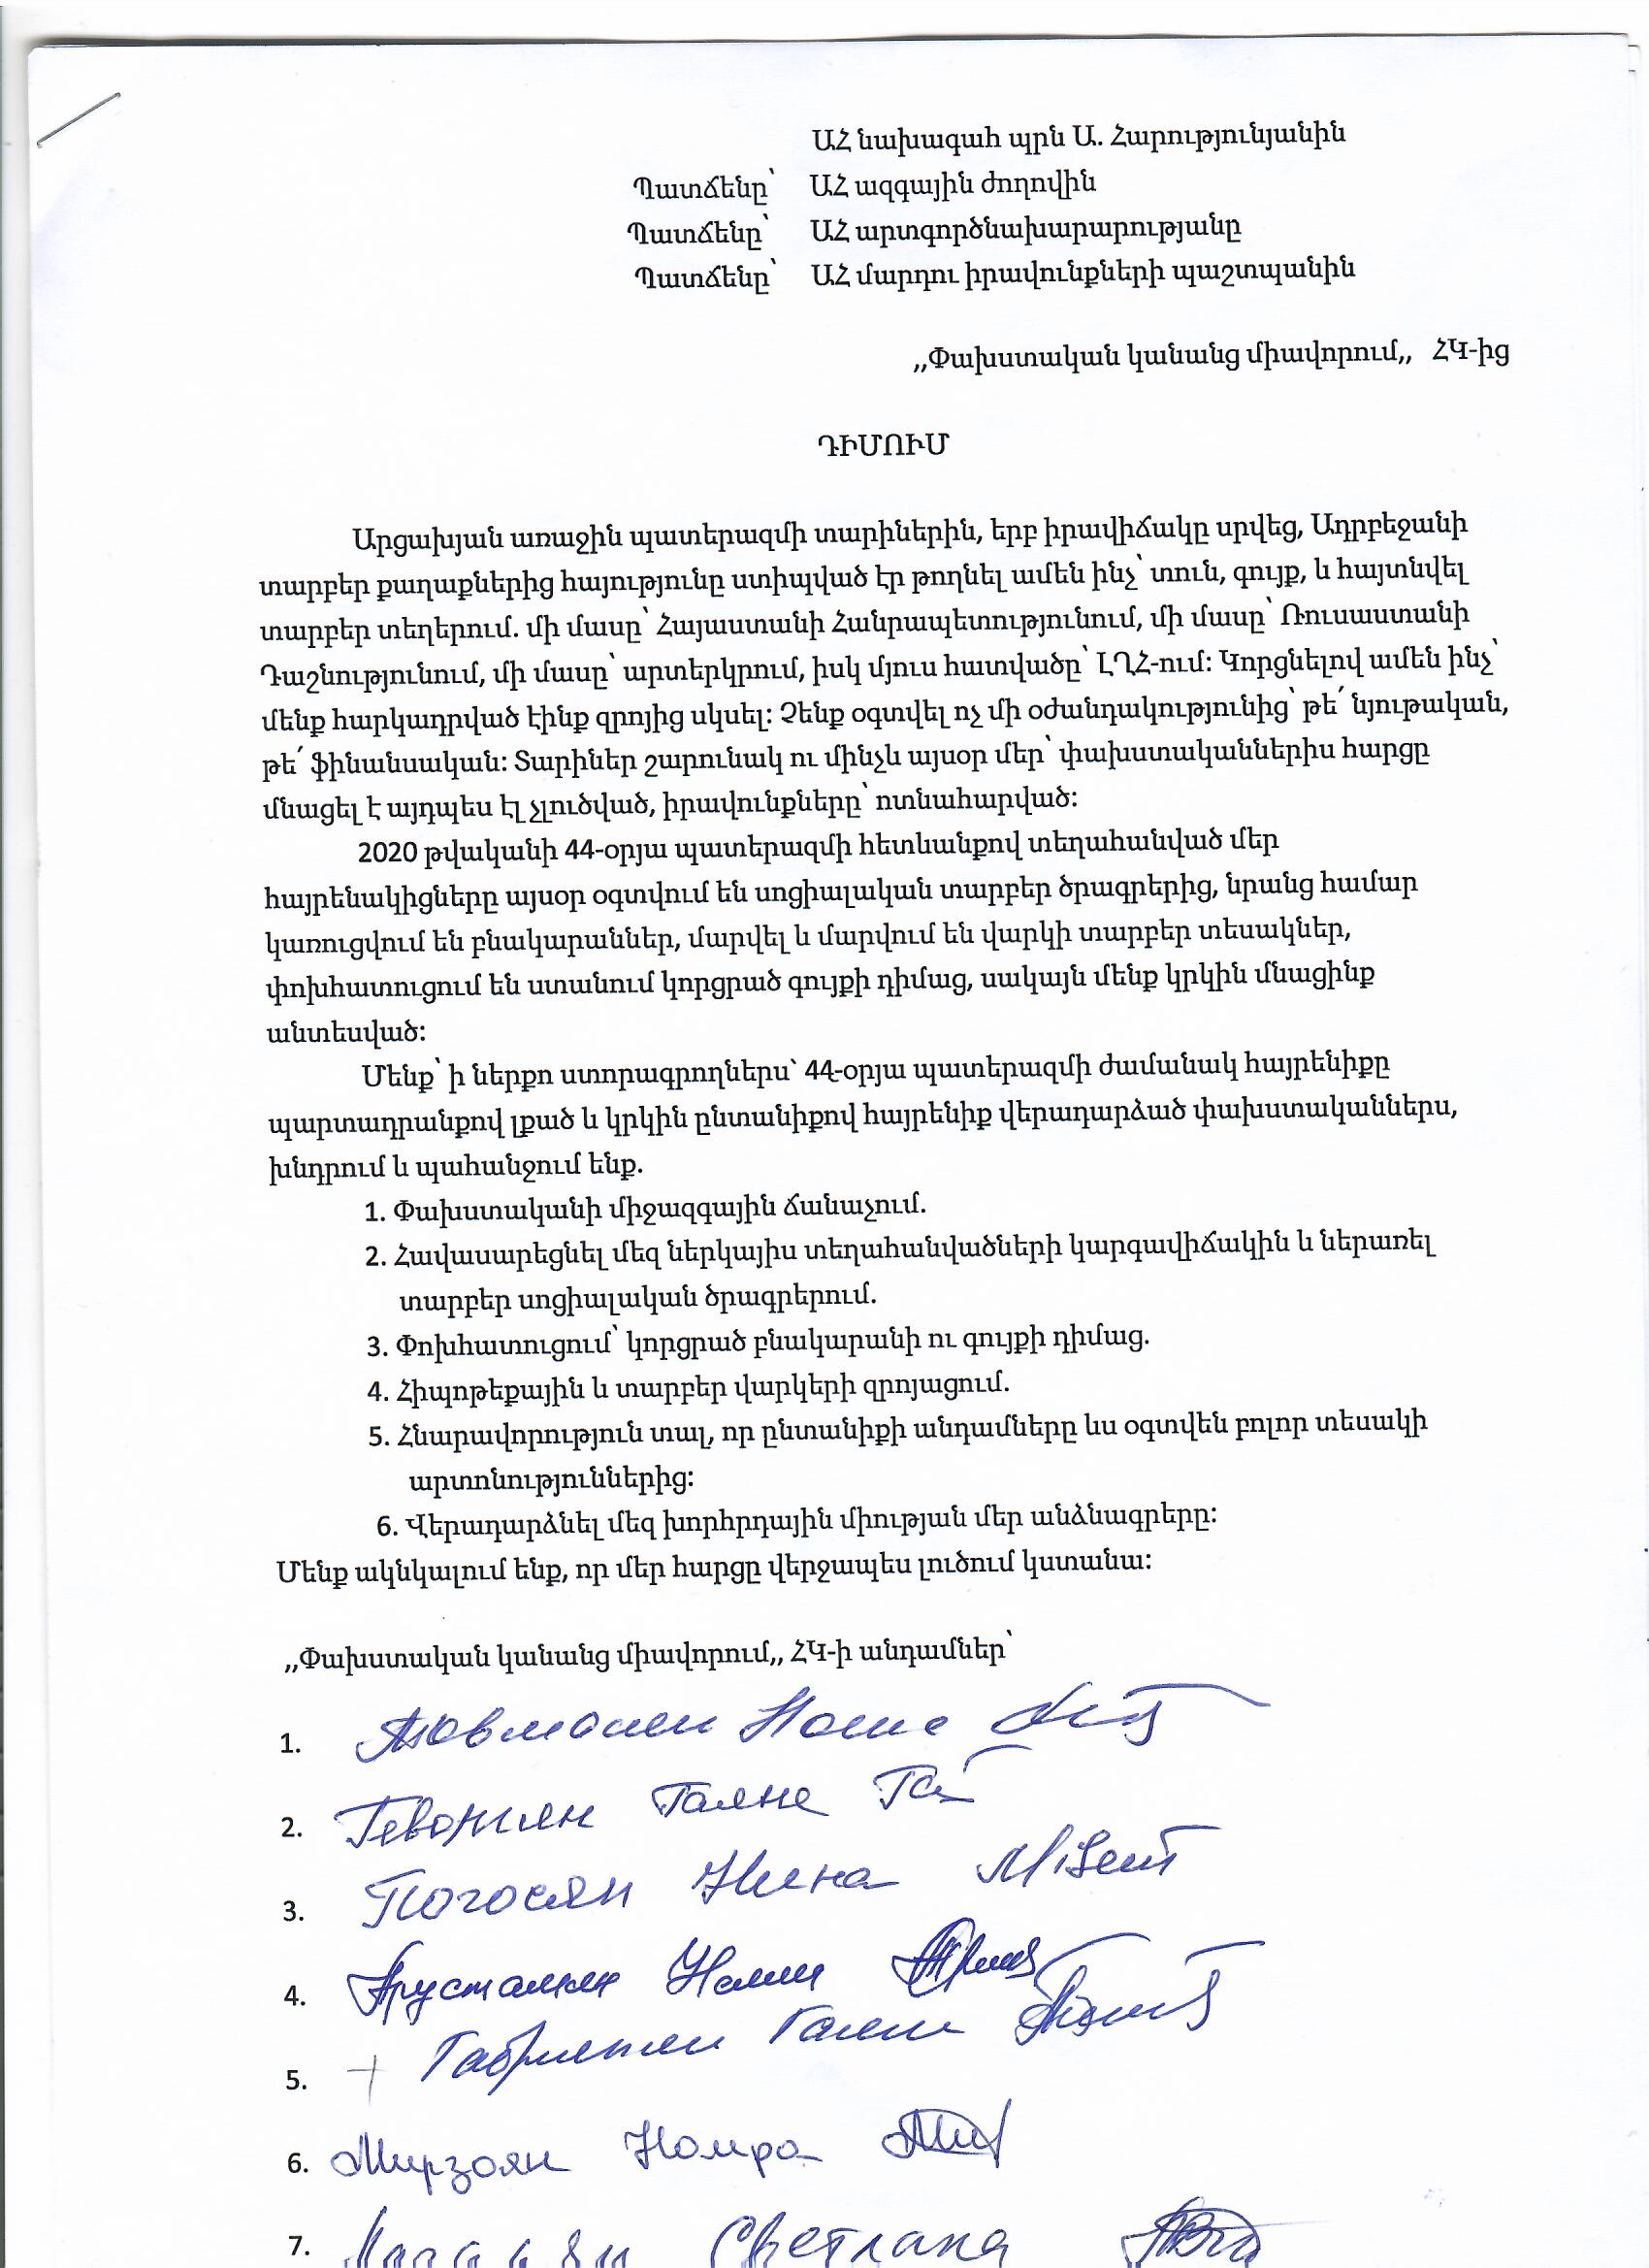 ԱՀ նախագահ պրն Ա. Հարությունյանին
Պատճենը՝ ԱՀ ազգային ժողովին
Պատճենը՝ ԱՀ արտգործնախարարությանը
Պատճենը՝ ԱՀ մարդու իրավունքների պաշտպանին
,,Փախստական կանանց միավորում,, ՀԿ-ից
ԴԻՄՈՒՄ
Արցախյան առաջին պատերազմի տարիներին, երբ իրավիճակը սրվեց, Ադրբեջանի
տարբեր քաղաքներից հայությունը ստիպված էր թողնել ամեն ինչ՝ տուն, գույք, և հայտնվել
տարբեր տեղերում. մի մասը՝ Հայաստանի Հանրապետությունում, մի մասը՝ Ռուսաստանի
Դաշնությունում, մի մասը՝ արտերկրում, իսկ մյուս հատվածը՝ ԼՂՀ-ում: Կորցնելով ամեն ինչ՝
մենք հարկադրված էինք զրոյից սկսել: Չենք օգտվել ոչ մի օժանդակությունից՝ թե՛ նյութական,
թե՛ ֆինանսական: Տարիներ շարունակ ու մինչև այսօր մեր՝ փախստականներիս հարցը
մնացել է այդպես էլ չլուծված, իրավունքները՝ ոտնահարված:
2020 թվականի 44-օրյա պատերազմի հետևանքով տեղահանված մեր
հայրենակիցները այսօր օգտվում են սոցիալական տարբեր ծրագրերից, նրանց համար
կառուցվում են բնակարաններ, մարվել և մարվում են վարկի տարբեր տեսակներ,
փոխհատուցում են ստանում կորցրած գույքի դիմաց, սակայն մենք կրկին մնացինք
անտեսված:
Մենք՝ ի ներքո ստորագրողներս՝ 44-օրյա պատերազմի ժամանակ հայրենիքը
պարտադրանքով լքած և կրկին ընտանիքով հայրենիք վերադարձած փախստականներս,
խնդրում և պահանջում ենք.
1. Փախստականի միջազգային ճանաչում.
2. Հավասարեցնել մեզ ներկայիս տեղահանվածների կարգավիճակին և ներառել
տարբեր սոցիալական ծրագրերում.
3. Փոխհատուցում՝ կորցրած բնակարանի ու գույքի դիմաց.
4. Հիպոթեքային և տարբեր վարկերի զրոյացում.
5. Հնարավորություն տալ, որ ընտանիքի անդամները ևս օգտվեն բոլոր տեսակի
արտոնություններից:
6. Վերադարձնել մեզ խորհրդային միության մեր անձնագրերը:
Մենք ակնկալում ենք, որ մեր հարցը վերջապես լուծում կստանա:
,,Փախստական կանանց միավորում,, ՀԿ-ի անդամներ՝
1.
2. Гаяне
3. Погосян Нина
4.
5.
6. Мирзоян
7. Светлана